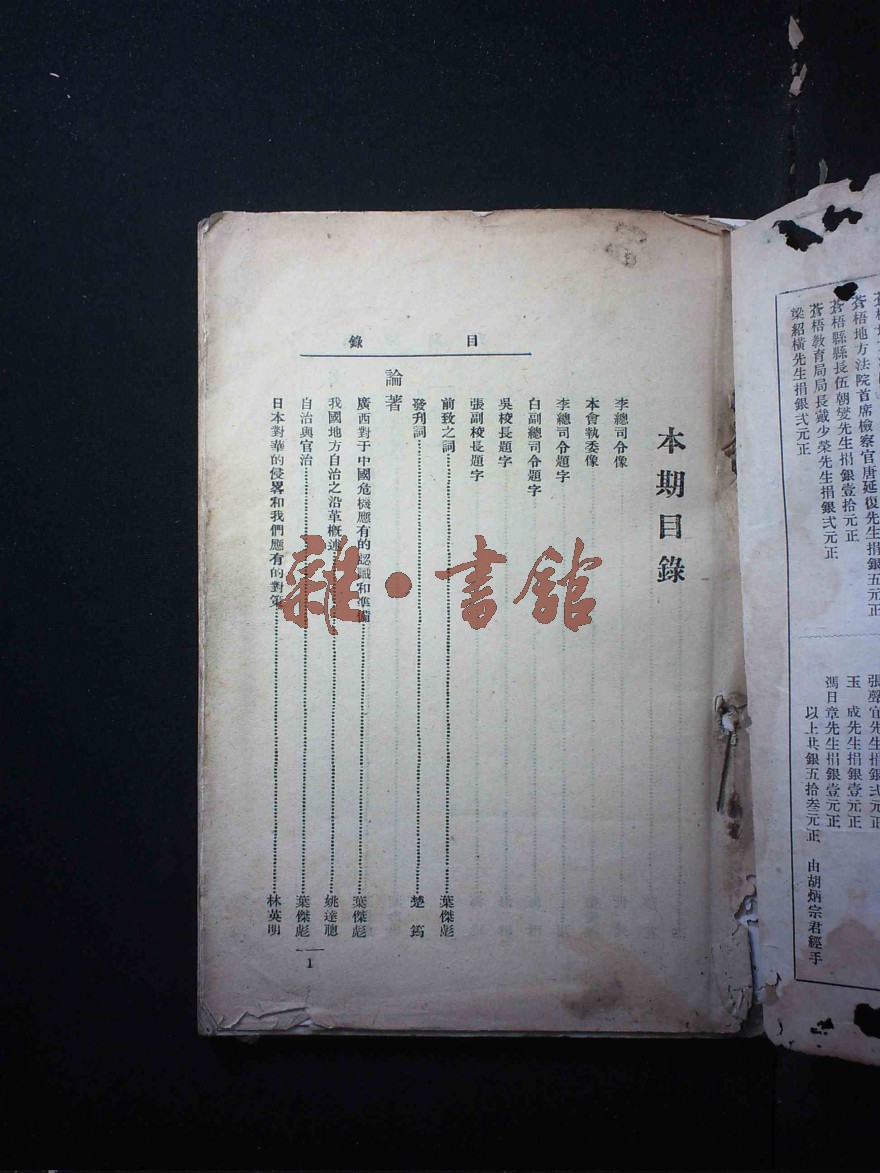 目錄
本期目錄
李總司令像
本會執委像
李總司令題字
白副總司令題字
吳校長題字
張副校長題字
前致之詞……葉傑彪
發刊詞……楚筠
論著
廣西對于中國危機應有的認識和準備……葉傑彪
我國地方自治之沿革概述……姚達聰
自治與官治……葉傑彪
日本對華的侵畧和我們應有的對策……林英明
1
雜·書館
蒼梧地方法院首席檢察官唐延復先生捐銀五元正
蒼梧縣縣長伍朝燮先生捐銀壹拾元正
蒼梧教育局局長戴少榮先生捐銀弍元正
梁紹橫先生捐銀弍元正
宜先生捐銀弍元正
玉成先生捐銀壹元正
馮日章先生捐銀壹元正
以上共銀五拾叁元正 由胡炳宗君經手